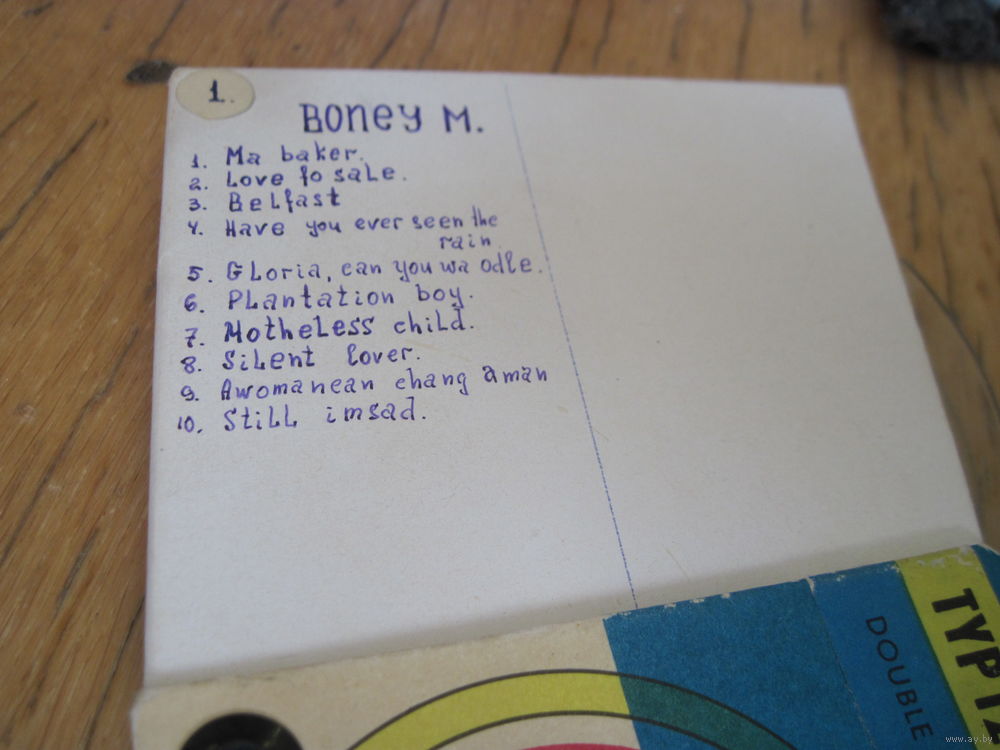 1.
Boney M.
1. Ma baker.
2. Love fo sale.
3. Belfast
4. Have you ever seen the
rain.
5. Gloria, can you wa odle.
6. Plantation boy.
7. Motheless child.
8. Silent lover.
9. Awomanean chang a man
10. Still imsad.
DOUBLE
www.ay.by